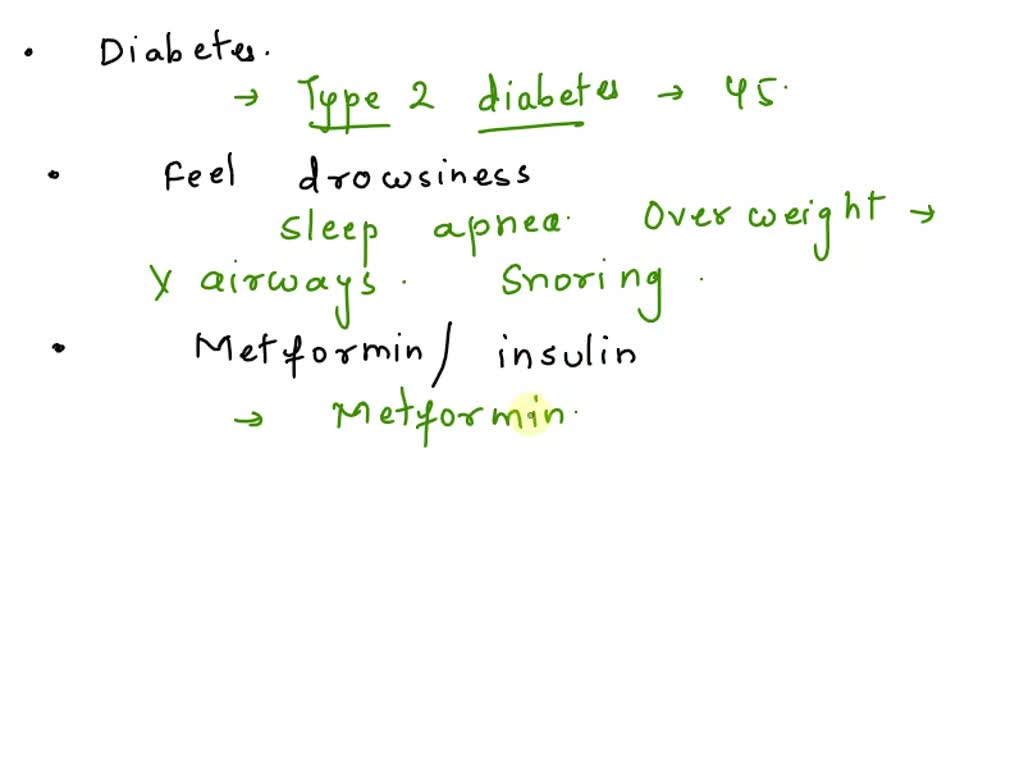 • Diabetes.
→ Type 2 diabetes → 45.
• Feel drowsiness
sleep apnea. Over weight →
X airways. Snoring.
• Metformin/ insulin
→ Metformin.